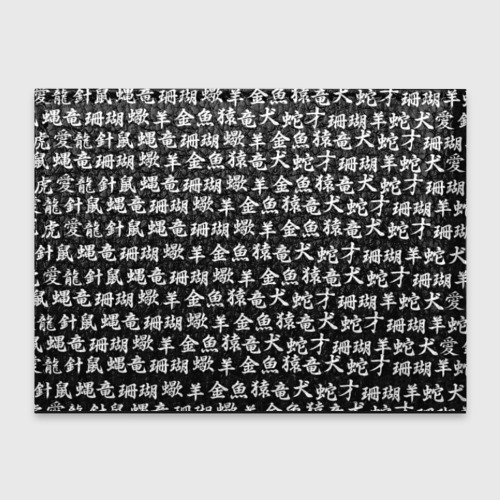 愛龍針鼠蝿竜珊瑚蠍羊金魚猿竜犬蛇才珊瑚羊
蝿竜珊瑚蠍羊金魚猿竜犬蛇才珊瑚羊蛇犬愛
虎愛龍針鼠蝿竜珊瑚蠍羊金魚猿竜犬蛇才珊瑚羊蛇
鼠蝿竜珊瑚蠍羊金魚猿竜犬蛇才珊瑚羊蛇犬愛
虎愛龍針鼠蝿竜珊瑚蠍羊金魚猿竜犬蛇才珊瑚羊
龍針鼠蝿竜珊瑚蠍羊金魚猿竜犬蛇才珊瑚羊蛇
虎愛龍針鼠蝿竜珊瑚蠍羊金魚猿竜犬蛇才珊瑚羊
針鼠蝿竜珊瑚蠍羊金魚猿竜犬蛇才珊瑚羊蛇犬
愛龍針鼠蝿竜珊瑚蠍羊金魚猿竜犬蛇才珊瑚羊
鼠蝿竜珊瑚蠍羊金魚猿竜犬蛇才珊瑚羊蛇犬愛
龍針鼠蝿竜珊瑚蠍羊金魚猿竜犬蛇才珊瑚羊蛇
愛龍針鼠蝿竜珊瑚蠍羊金魚猿竜犬蛇才珊瑚羊蛇犬愛
針鼠蝿竜珊瑚蠍羊金魚猿竜犬蛇才珊瑚羊蛇犬
虎愛龍針鼠蝿竜珊瑚蠍羊金魚猿竜犬蛇才珊瑚羊